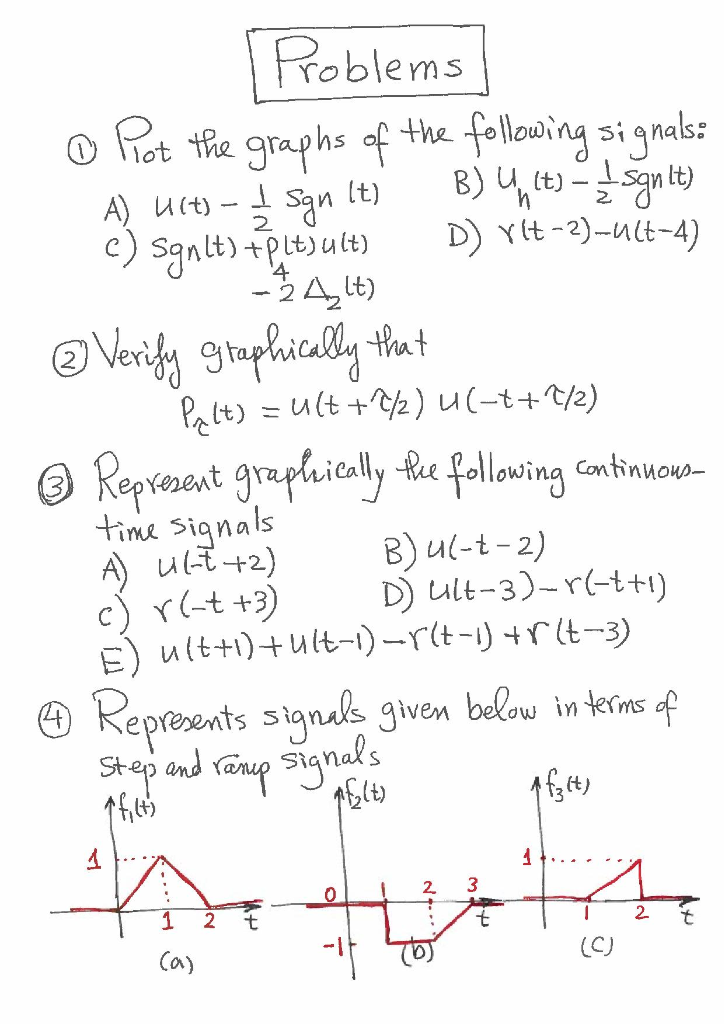 Problems
① Plot the graphs of the following signals:
A) u(t) - 1/2 sgn(t) B) u_h(t) - 1/2 sgn(t)
C) sgn(t) + p_4(t) u(t) D) r(t-2) - u(t-4)
- 2 Δ_2(t)
② Verify graphically that
P_τ(t) = u(t + τ/2) u(-t + τ/2)
③ Represent graphically the following continuous-
time signals
A) u(-t+2) B) u(-t-2)
C) r(-t+3) D) u(t-3) - r(-t+1)
E) u(t+1) + u(t-1) - r(t-1) + r(t-3)
④ Represents signals given below in terms of
step and ramp signals
f_1(t) f_2(t) f_3(t)
1 0 1 2 3 1
1 2 t t 1 2 t
-1
(a) (b) (c)